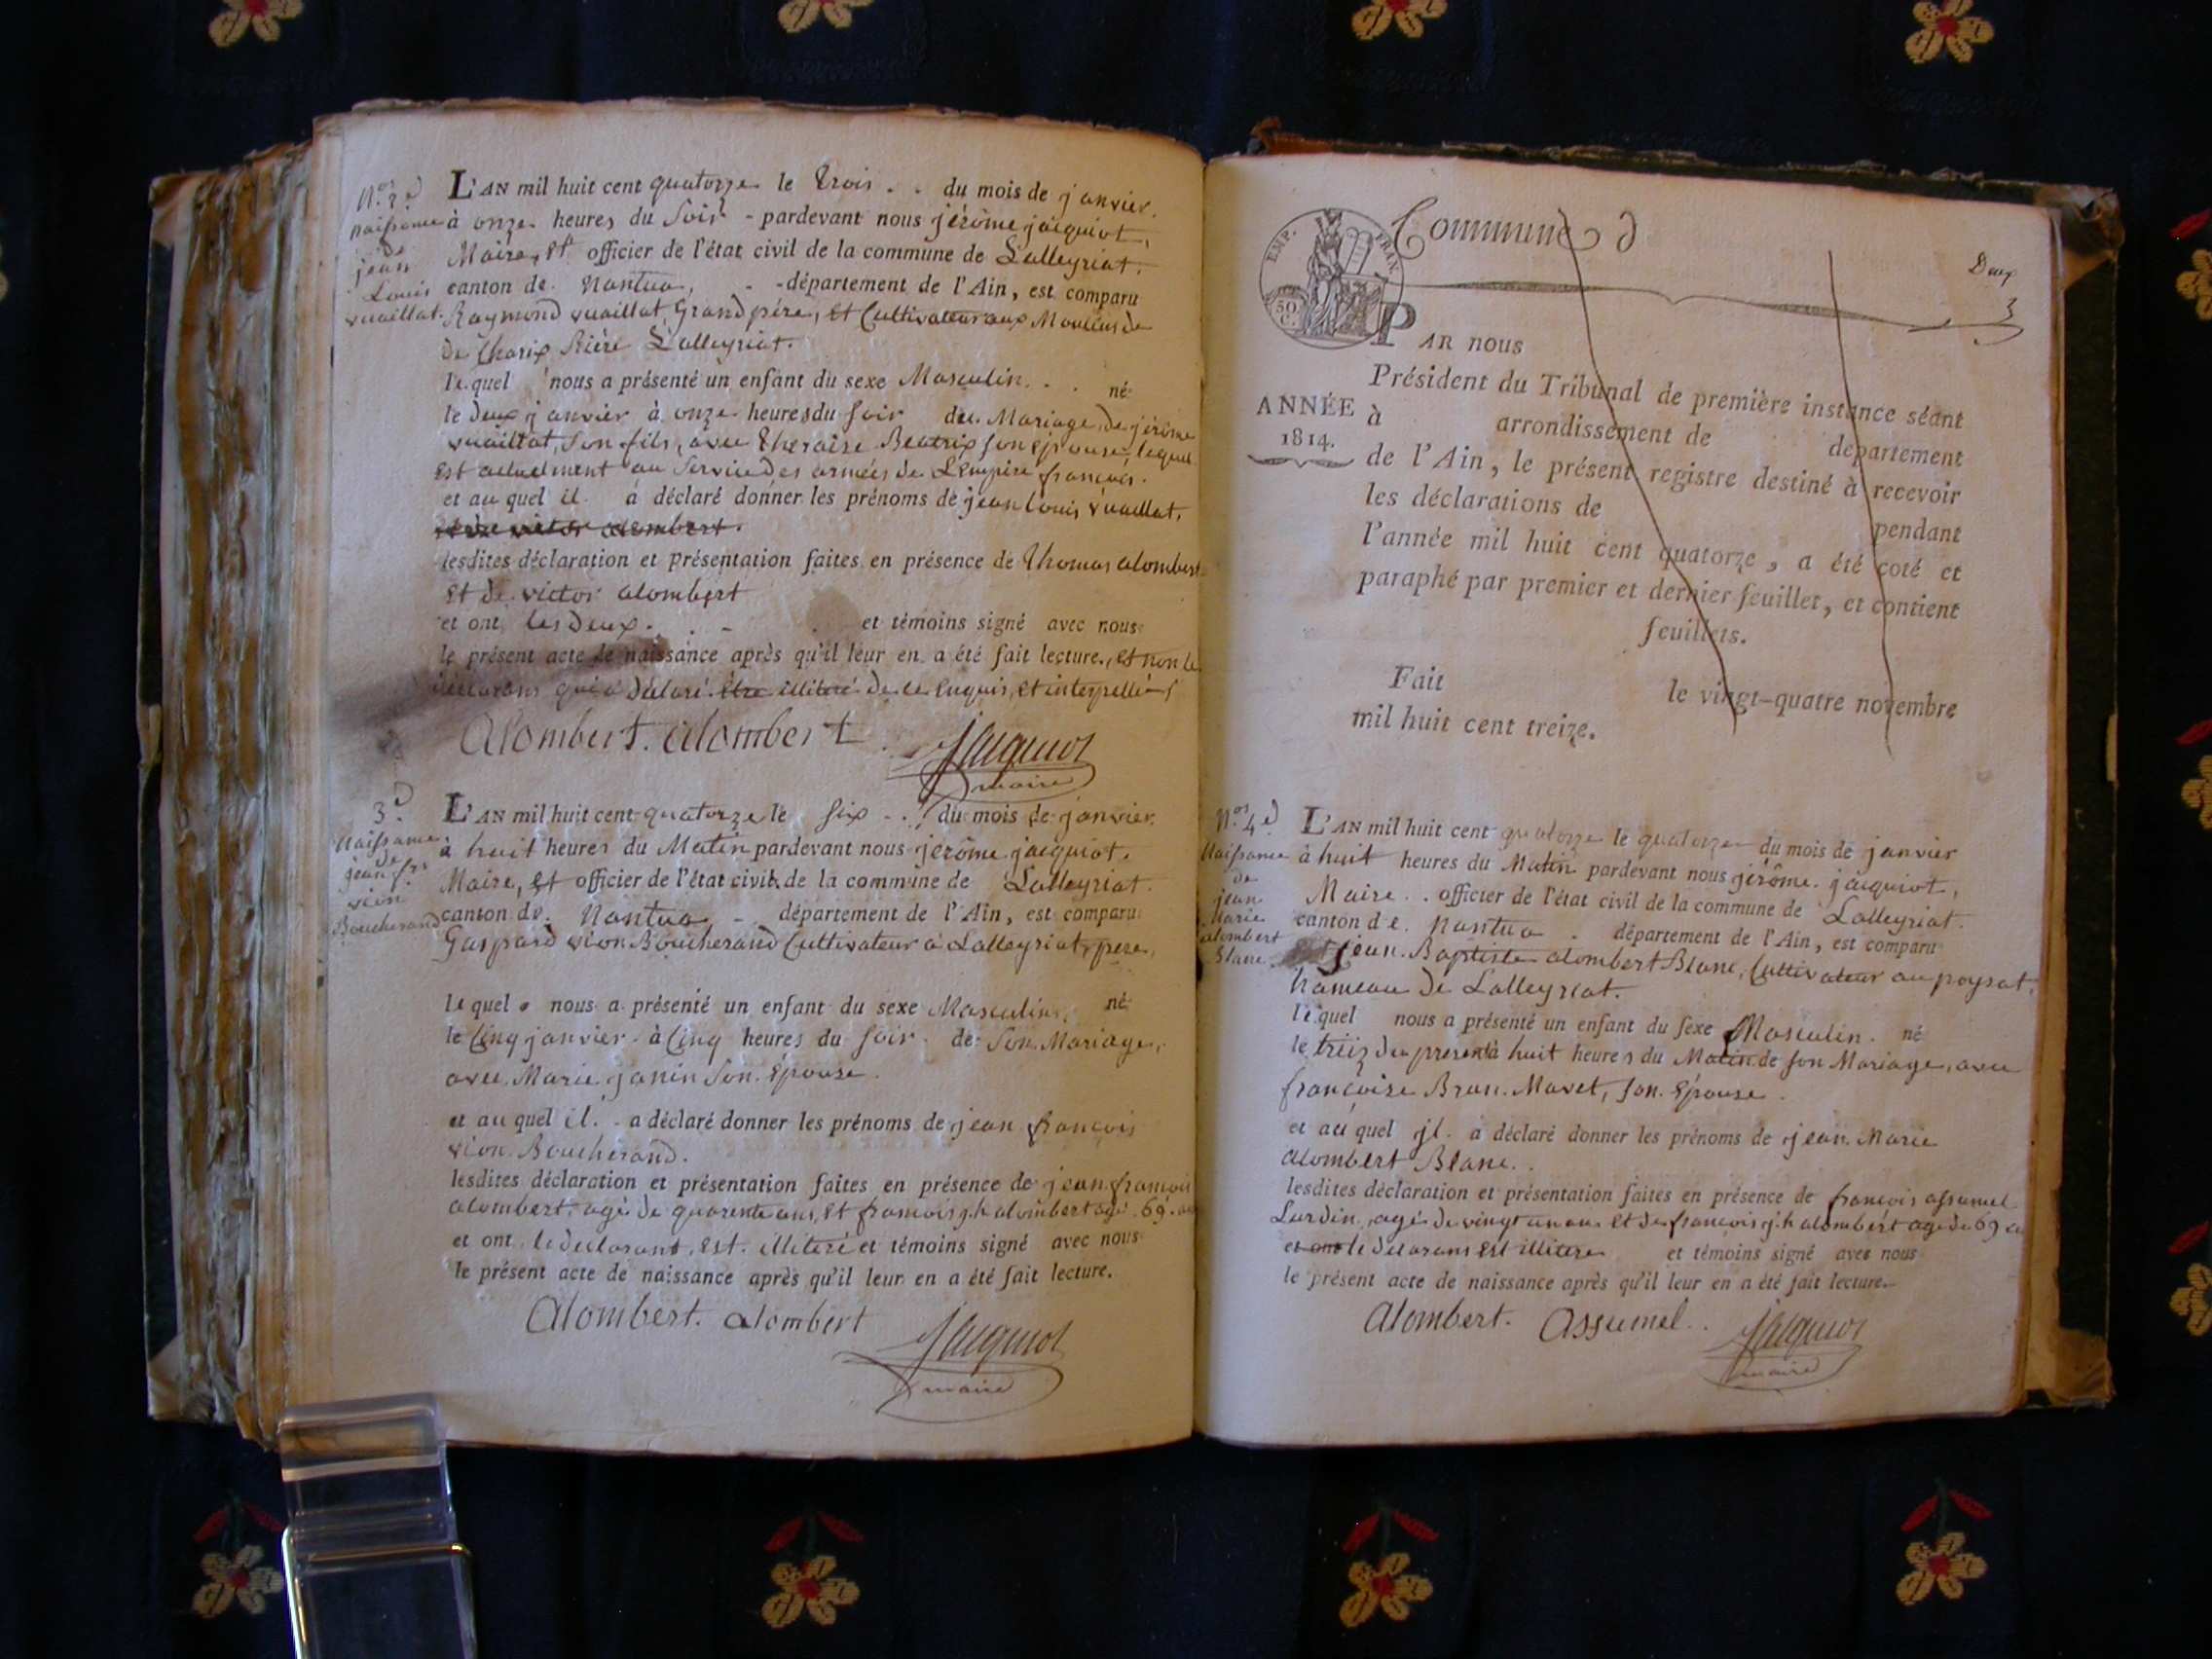 N.os 2.e
naissance
de
jean
Louis
vuaillat.
L'AN mil huit cent quatorze le trois . . du mois de janvier.
à onze heures du soir - pardevant nous jérôme jacquiot,
Maire, et officier de l'état civil de la commune de Lalleyriat.
canton de Nantua, - - département de l'Ain, est comparu
Raymond vuaillat Grand père, et Cultivateur aux Moulins de
de Charix Rière Lalleyriat.
lequel nous a présenté un enfant du sexe Masculin. . . né
le deux janvier à onze heures du soir du Mariage de jérôme
vuaillat, son fils, avec theraise Beatrix son épouse, lequel
est actuelment au service des armées de L'empire françois.
et au quel il a déclaré donner les prénoms de jean Louis vuaillat.
victor alombert.
lesdites déclaration et présentation faites en présence de thomas alombert
et de victor alombert
et ont les deux . . - et témoins signé avec nous
le présent acte de naissance après qu'il leur en a été fait lecture, et non le
déclarans qui a déclaré être illiteré de ce enquis, et interpellé
Alombert. alombert Jacquiot
maire
3.e
Naissance
de
jean fr.s
vion
Boucherand
L'AN mil huit cent quatorze le six - . . du mois de janvier.
à huit heures du Matin pardevant nous jérôme jacquiot.
Maire, et officier de l'état civil de la commune de Lalleyriat.
canton de Nantua - département de l'Ain, est comparu
Gaspard vion Boucherand Cultivateur à Lalleyriat, pere,
lequel nous a présenté un enfant du sexe Masculin, né
le Cinq janvier à Cinq heures du soir de Son Mariage,
avec Marie janin Son épouse.
et au quel il . a déclaré donner les prénoms de jean françois
vion Boucherand.
lesdites déclaration et présentation faites en présence de jean françois
alombert, agé de quarente ans, et françois j.h alombert agé 69.
et ont le declarant, est illiteré et témoins signé avec nous
le présent acte de naissance après qu'il leur en a été fait lecture.
Alombert. alombert Jacquiot
maire
Commune d
EMP. FRAN.
50 C.
Deux
3
PAR nous
Président du Tribunal de première instance séant
ANNÉE
1814.
à arrondissement de département
de l'Ain, le présent registre destiné à recevoir
les déclarations de pendant
l'année mil huit cent quatorze, a été coté et
paraphé par premier et dernier feuillet, et contient
feuillets.
Fait le vingt-quatre novembre
mil huit cent treize.
N.os 4.e
Naissance
de
jean
Marie
alombert
Blanc.
L'AN mil huit cent quatorze le quatorze du mois de janvier
à huit heures du Matin pardevant nous jérôme jacquiot,
Maire . . officier de l'état civil de la commune de Lalleyriat.
canton de Nantua . département de l'Ain, est comparu
jean Baptiste alombert Blanc, Cultivateur au poysat,
hameau de Lalleyriat.
lequel nous a présenté un enfant du sexe Masculin. né
le treiz du present à huit heures du Matin de son Mariage, avec
françoise Brun Mavet, son épouse.
et au quel jl a déclaré donner les prénoms de jean Marie
alombert Blanc. .
lesdites déclaration et présentation faites en présence de françois assumel
Lurdin, agé de vingt un ans et de françois j.h alombert agé de 69 a
et ont le declarans est illitere et témoins signé avec nous
le présent acte de naissance après qu'il leur en a été fait lecture.
Alombert. Assumel. . Jacquiot
maire